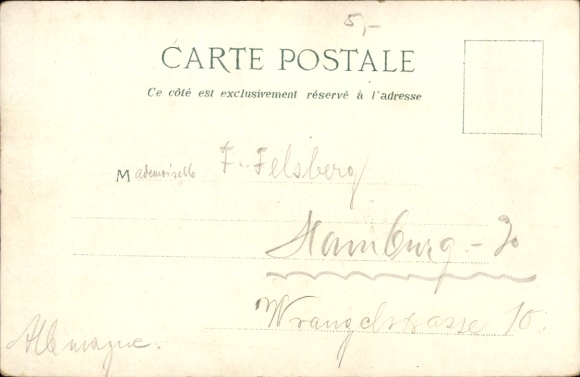 5,-
CARTE POSTALE
Ce côté est exclusivement réservé à l'adresse
Mademoiselle F. Felsberg
Hamburg - 30
Wrangelstrasse 10.
Allemagne.